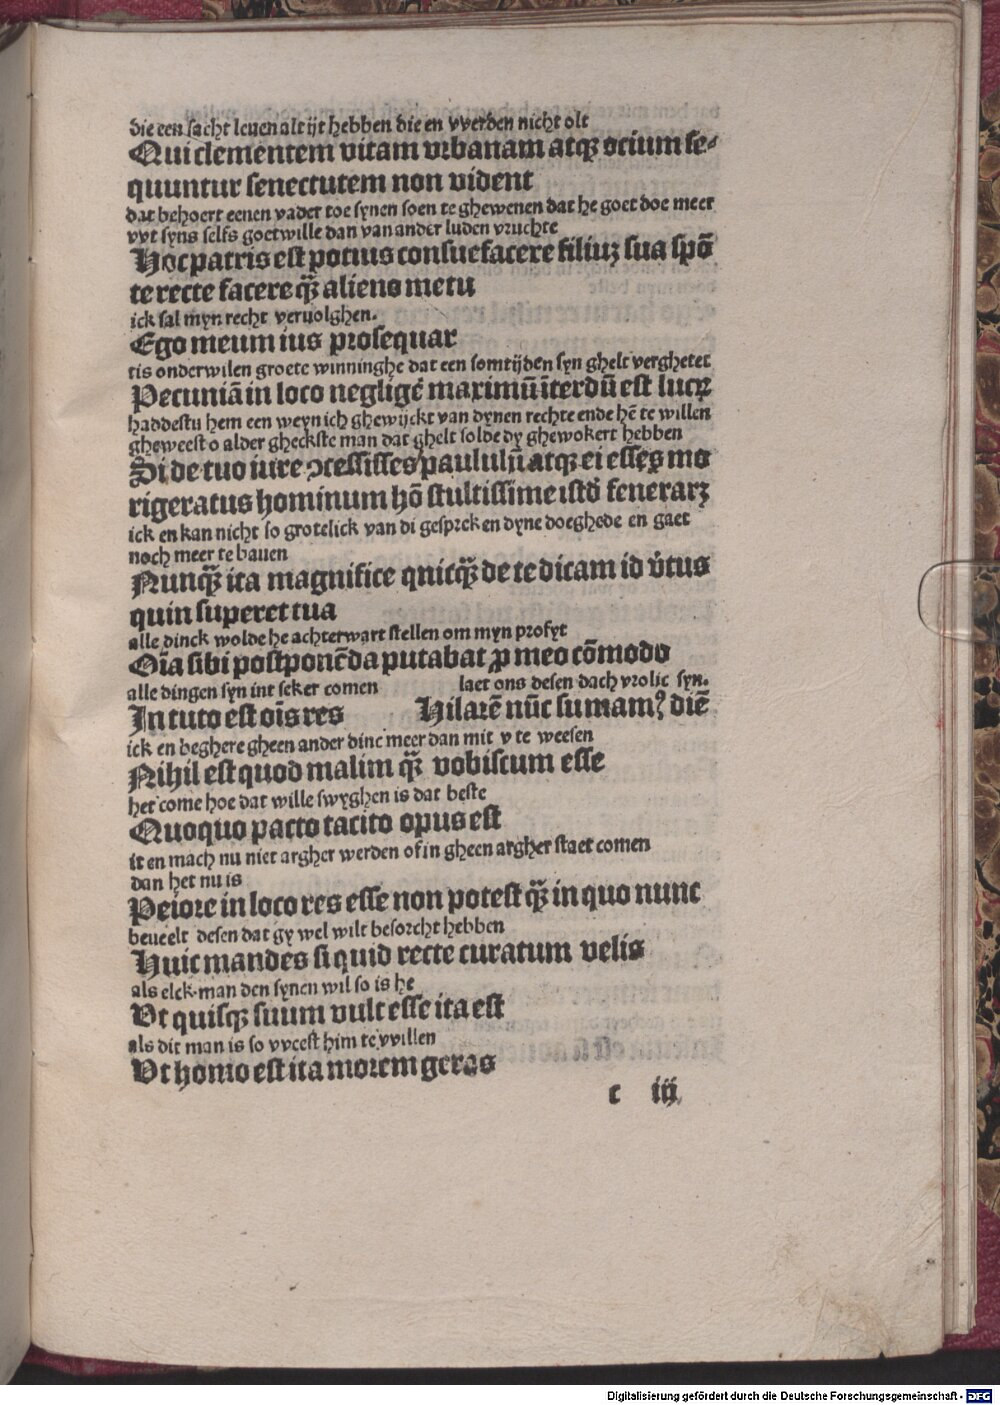 die een sacht leuen altijt hebben die en vverden nicht olt
Qui clementem vitam vrbanam atqꝫ ocium se⸗
quuntur senectutem non vident
dat behoert eenen vader toe synen soen te ghewenen dat he goet doe meer
vvt syns selfs goetwille dan van ander luden vruchte
Hoc patris est potius consuefacere filiuꝫ sua spō
te recte facere qꝫ̃ alieno metu
ick sal myn recht veruolghen.
Ego meum ius prosequar
tis onderwilen groete winninghe dat een somtijden syn ghelt verghetet
Pecuniā in loco negligeẽ maximū īterdū est lucꝝ
haddestu hem een weynich ghewijckt van dynen rechte ende hē te willen
gheweest o alder gheckste man dat ghelt solde dy ghewokert hebben
Si de tuo iure ↄcessisses paululū atqꝫ ei esseꝫ mo
rigeratus hominum hō stultissime istđ fenerarꝫ
ick en kan nicht so grotelick van di gesprcken dyne doeghede en gaet
noch meer te bauen
Nunqꝫ̃ ita magnifice quicqꝫ̃ de te dicam id v̓tus
quin superet tua
alle dinck wolde he achterwart stellen om myn profyt
Oīa sibi postponēda putabat ꝓ meo cōmodo
alle dingen syn int seker comen laet ons desen dach vrolic syn.
In tuto est oīs res Hilarē nūc sumamꝰ diē
ick en beghere gheen ander dinc meer dan mit v te weesen
Nihil est quod malim qꝫ̃ vobiscum esse
het come hoe dat wille swyghen is dat beste
Quoquo pacto tacito opus est
it en mach nu niet argher werden of in gheen argher staet comen
dan het nu is
Peiore in loco res esse non potest qꝫ̃ in quo nunc
beueelt desen dat gy wel wilt besorcht hebben
Huic mandes si quid recte curatum velis
als elck man den synen wil so is he
Vt quisqꝫ suum vult esse ita est
als dit man is so vveest him te vvillen
Vt homo est ita morem geras
c iij
Digitalisierung gefördert durch die Deutsche Forschungsgemeinschaft - DFG